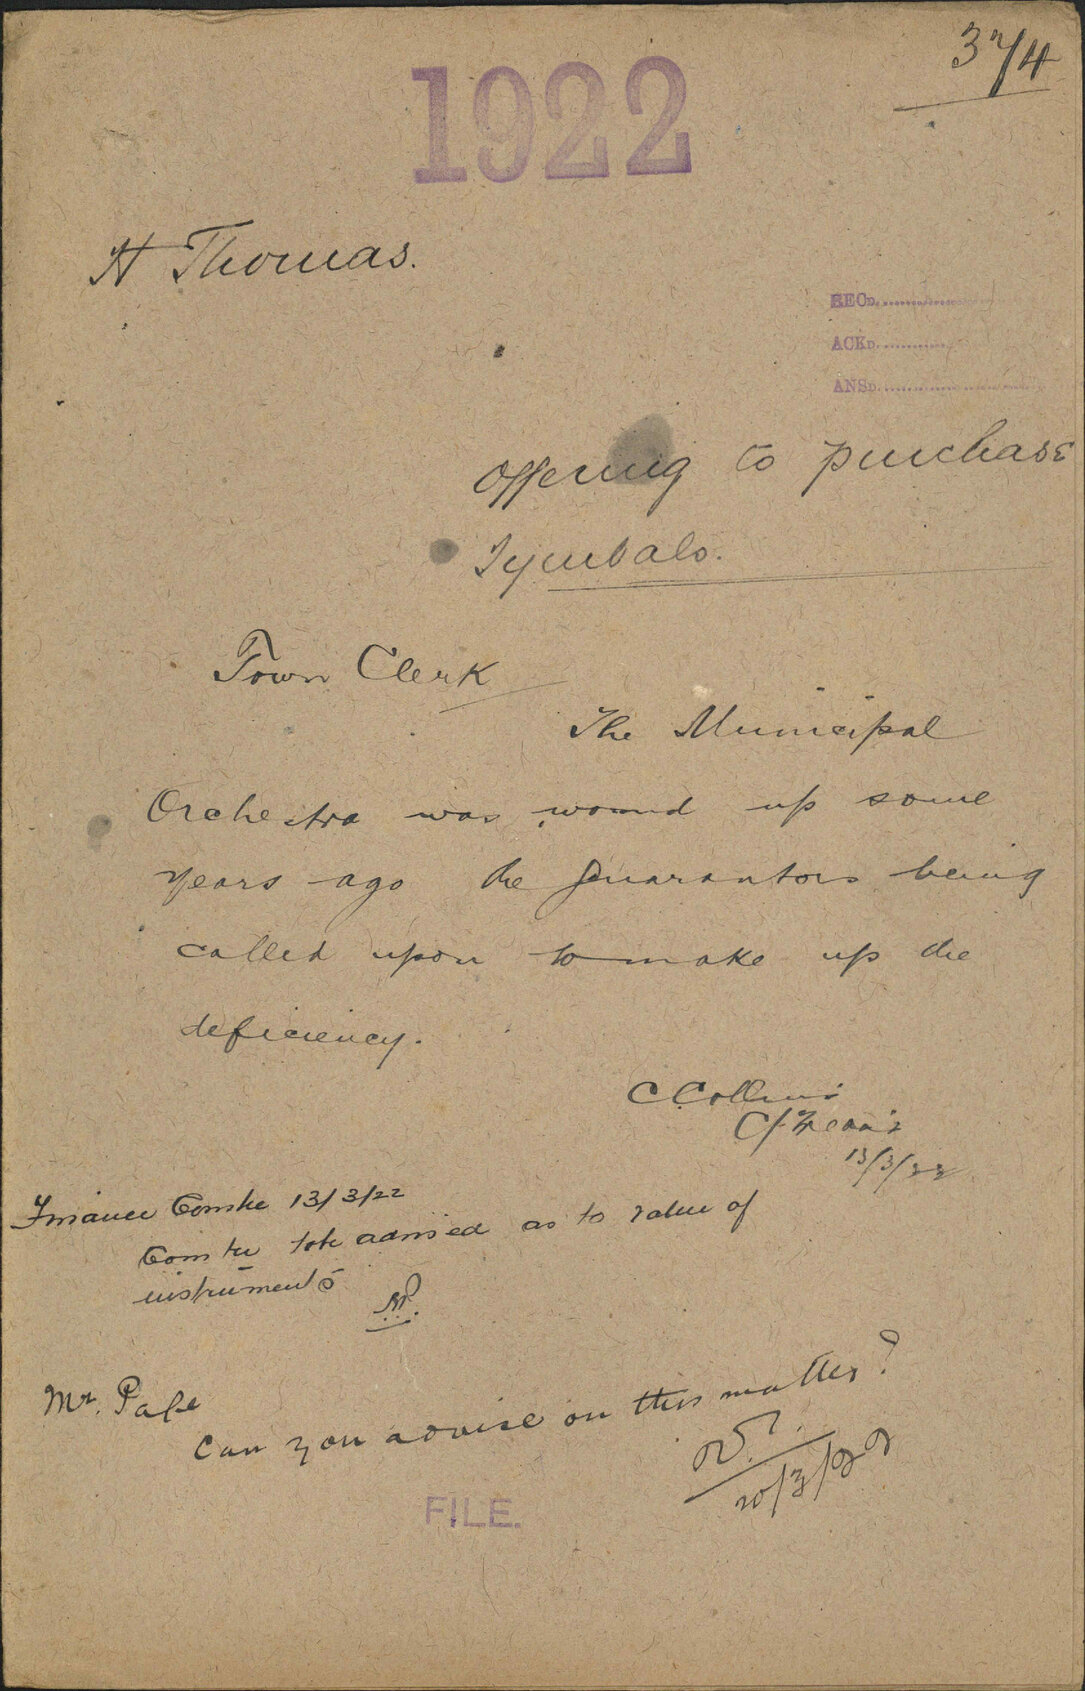 3n/4
1922
H Thomas.
RECD.
ACKD.
ANSD.
Offering to purchase
Symbals.
Town Clerk
The Municipal
Orchestra was wound up some
years ago the guarantors being
called upon to make up the
deficiency.
C Collins
C/Treas'r
13/3/22
Finance Comtee 13/3/22
Comtee to be advised as to value of
instruments
Mr. Page
Can you advise on this matter?
20/3/22
FILE.